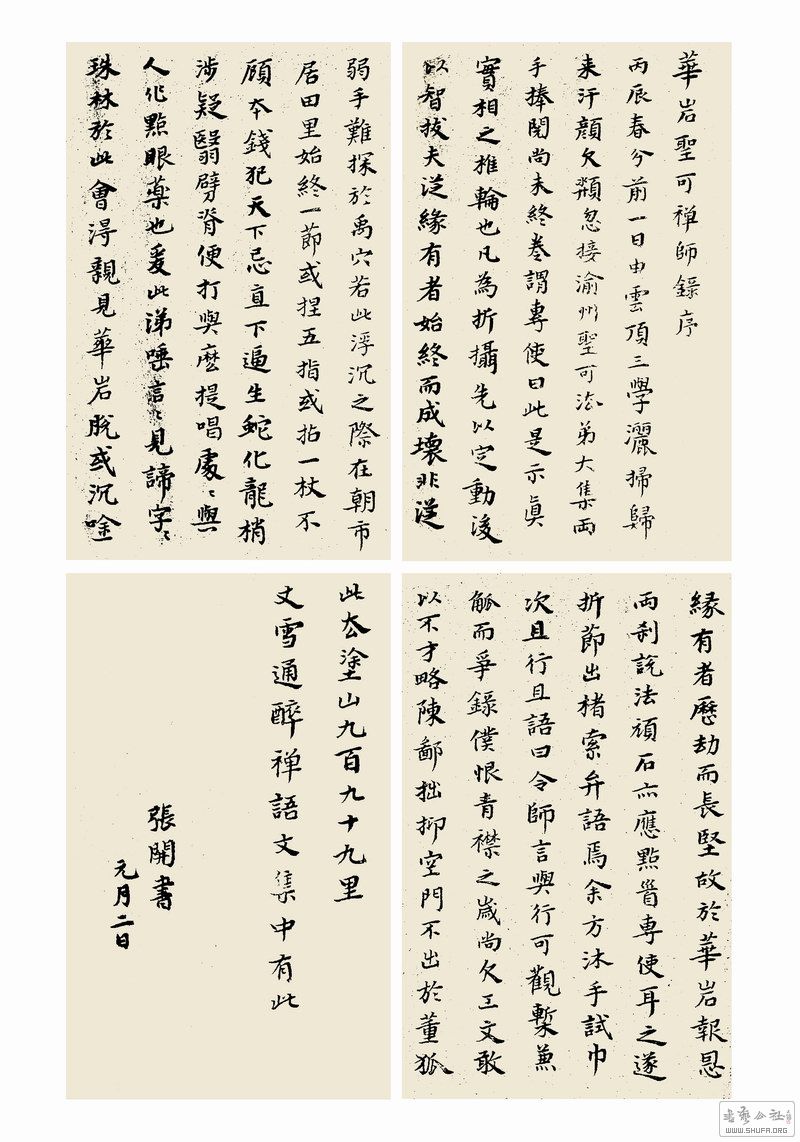 華岩聖可禅師錄序
丙辰春分前一日由雲頂三學灑掃歸
来汗顔欠㿱忽接渝州聖可法弟大集両
手捧閱尚未終卷謂專使曰此是示眞
實相之椎輪也凡為折攝先以定動後
以智拔夫從緣有者始終而成壞非從
緣有者歷劫而長堅故於華岩報恩
両刹説法頑石亦應點首專使耳之遂
折節出楮索弁語焉余方沐手試巾
次且行且語曰令師言與行可觀槧兼
觚而爭錄僕恨青襟之歲尚欠工文敢
以不才略陳鄙拙抑空門不出於董狐
弱手難探於禹穴若此浮沉之際在朝市
居田里始終一節或捏五指或拈一杖不
顧本錢犯天下忌直下逼生蛇化龍稍
涉疑翳劈脊便打與麽提唱處〻與
人作點眼藥也爰此涕唾言〻見諦字〻
珠林於此會得親見華岩脱或沉唫
此去塗山九百九十九里
丈雪通醉禅語文集中有此
張開書
元月二日
书艺公社
WWW.SHUFA.ORG